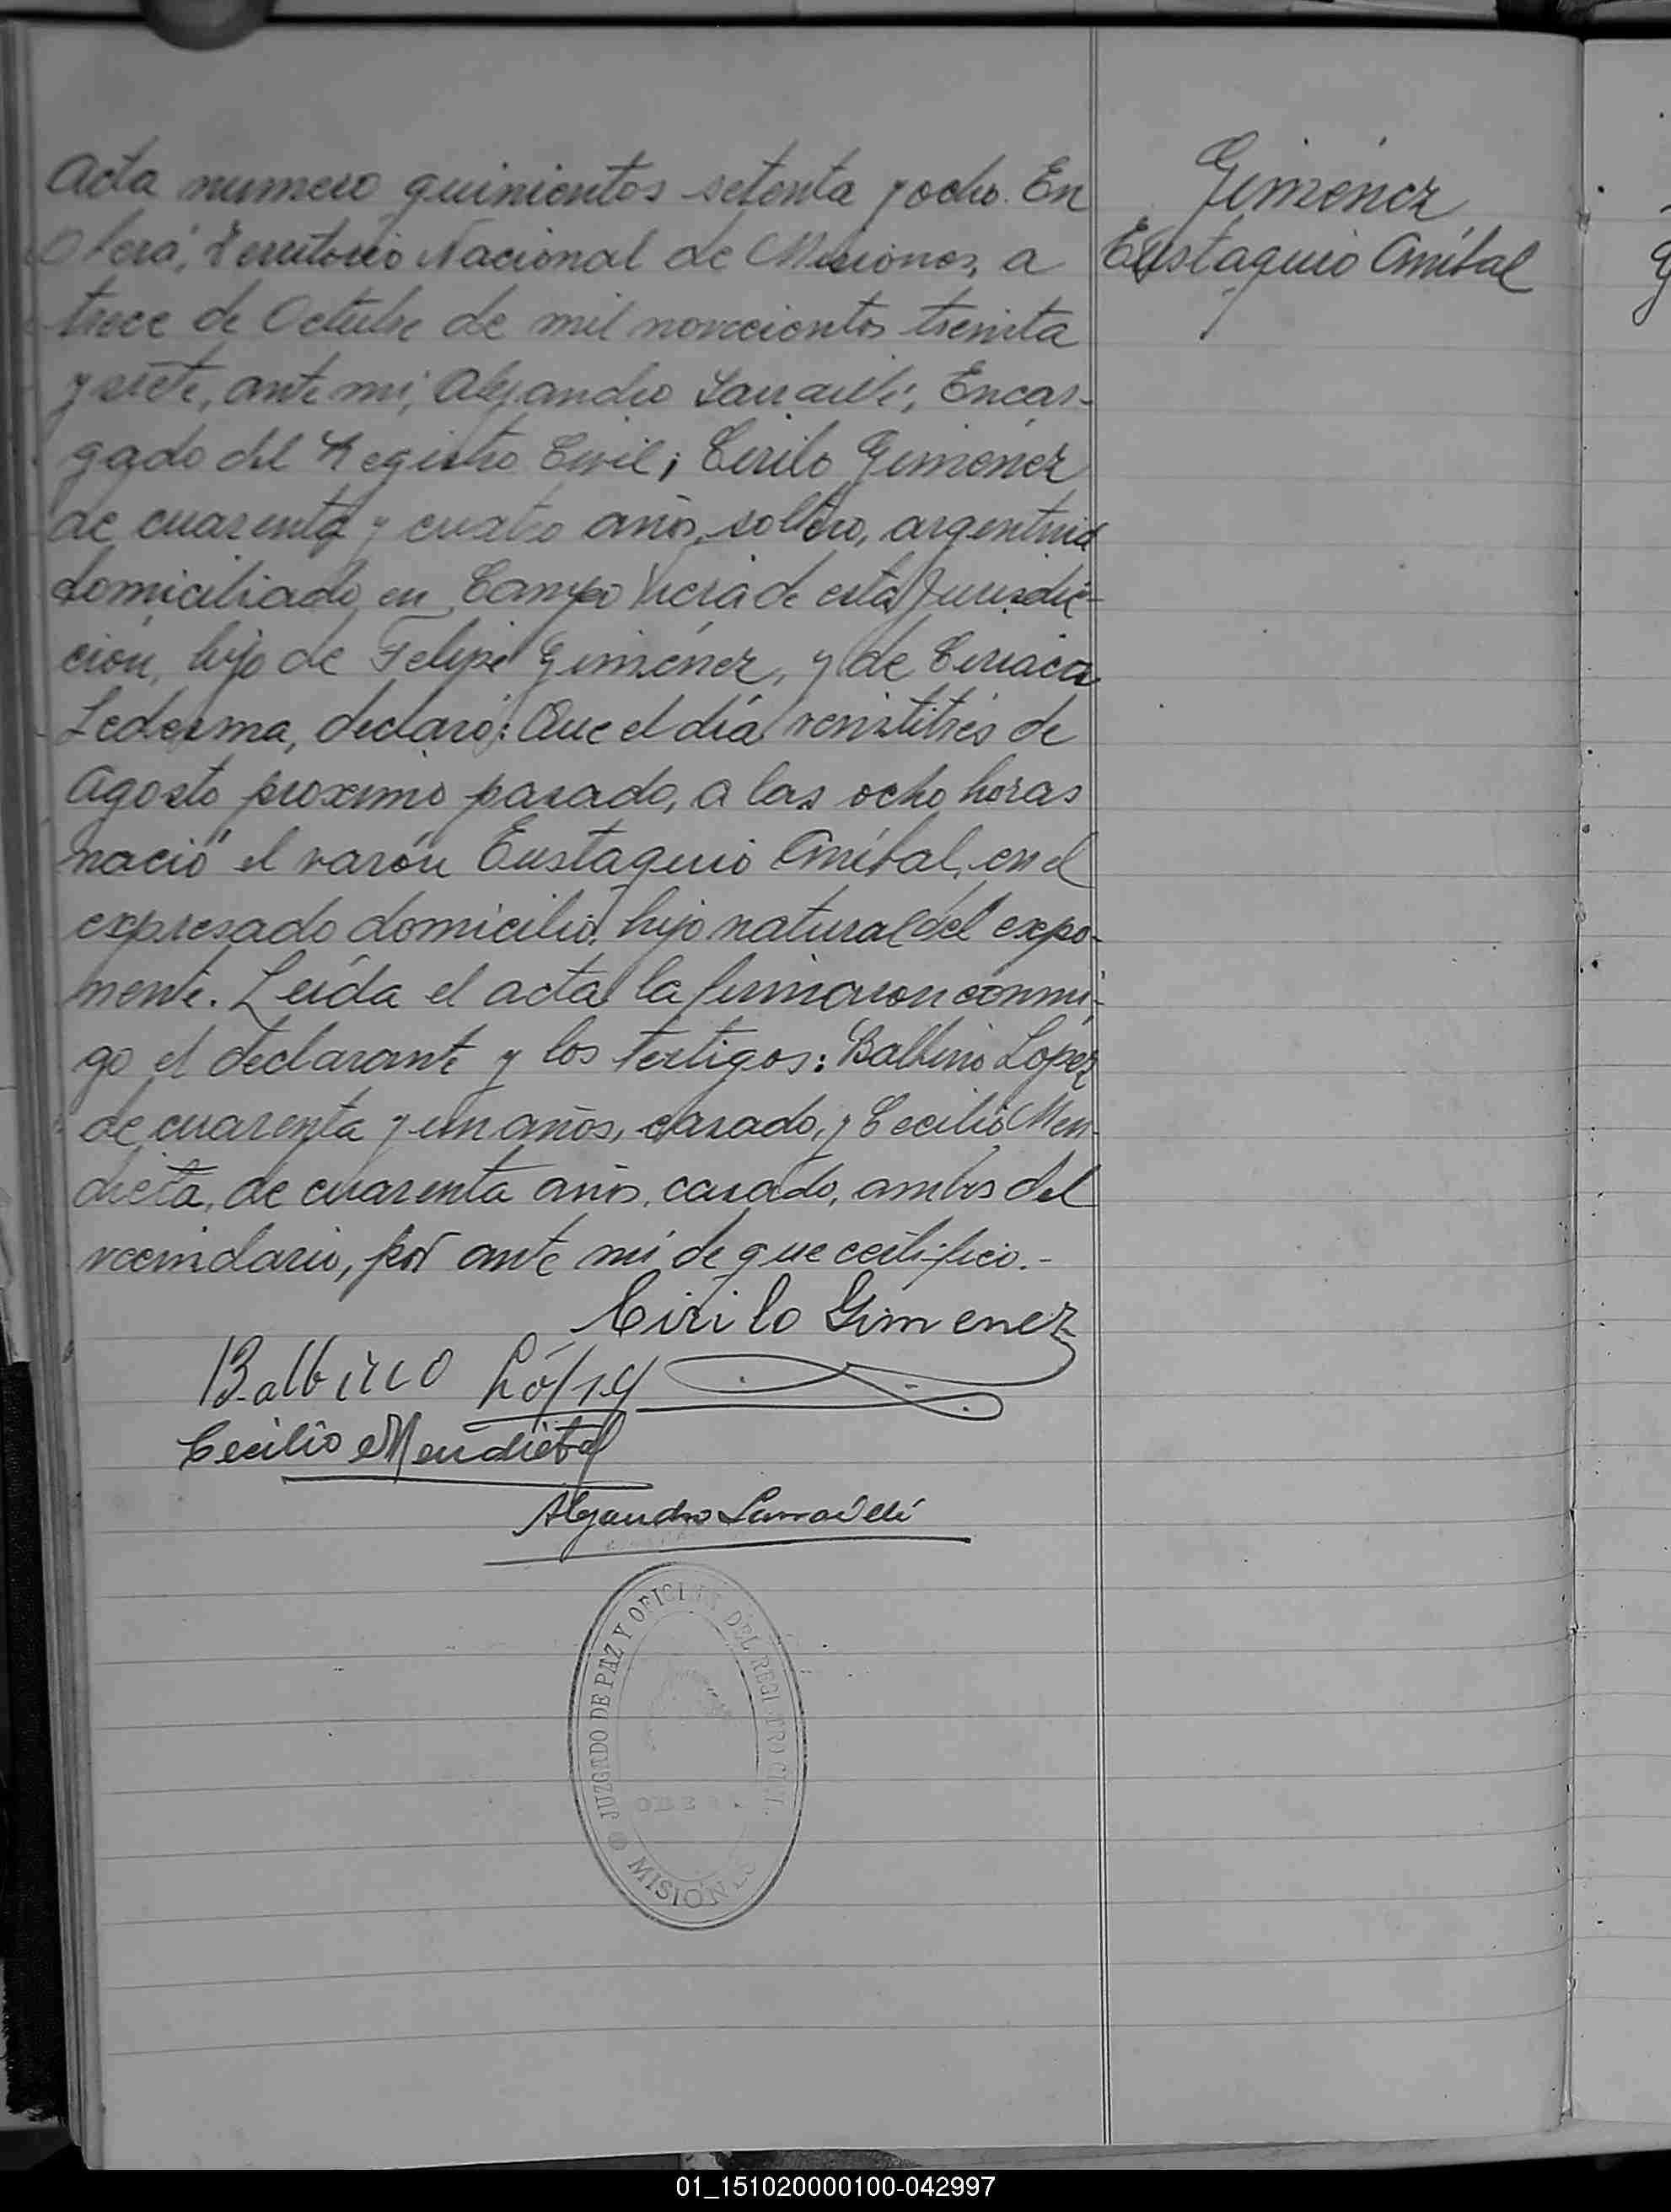 Acta numero quinientos setenta y ocho. En
Oberá, Territorio Nacional de Misiones, a
trece de Octubre de mil novecientos treinta
y siete, ante mi, Alejandro Larraillé, Encar-
gado del Registro Civil; Cirilo Giménez
de cuarenta y cuatro años, soltero, argentino
domiciliado en Campo Viera de esta Jurisdic-
ción, hijo de Felipe Giménez, y de Ciriaca
Ledesma, declaró: Que el día veintitrés de
Agosto proximo pasado, a las ocho horas
nació el varón Eustaquio Aníbal, en el
expresado domicilio, hijo natural del expo-
nente. Leída el acta la firmaron conmi-
go el declarante y los testigos: Balbino Lopez
de cuarenta y un años, casado, y Cecilio Men-
dieta, de cuarenta años, casado, ambos del
vecindario, por ante mí de que certifico.-
Cirilo Gimenez
Balbino López
Cecilio Mendieta
Alejandro
Giménez
Eustaquio Aníbal
JUZGADO DE PAZ Y OFICINA DEL REGISTRO CIVIL
OBERA
MISIONES
01_151020000100-042997